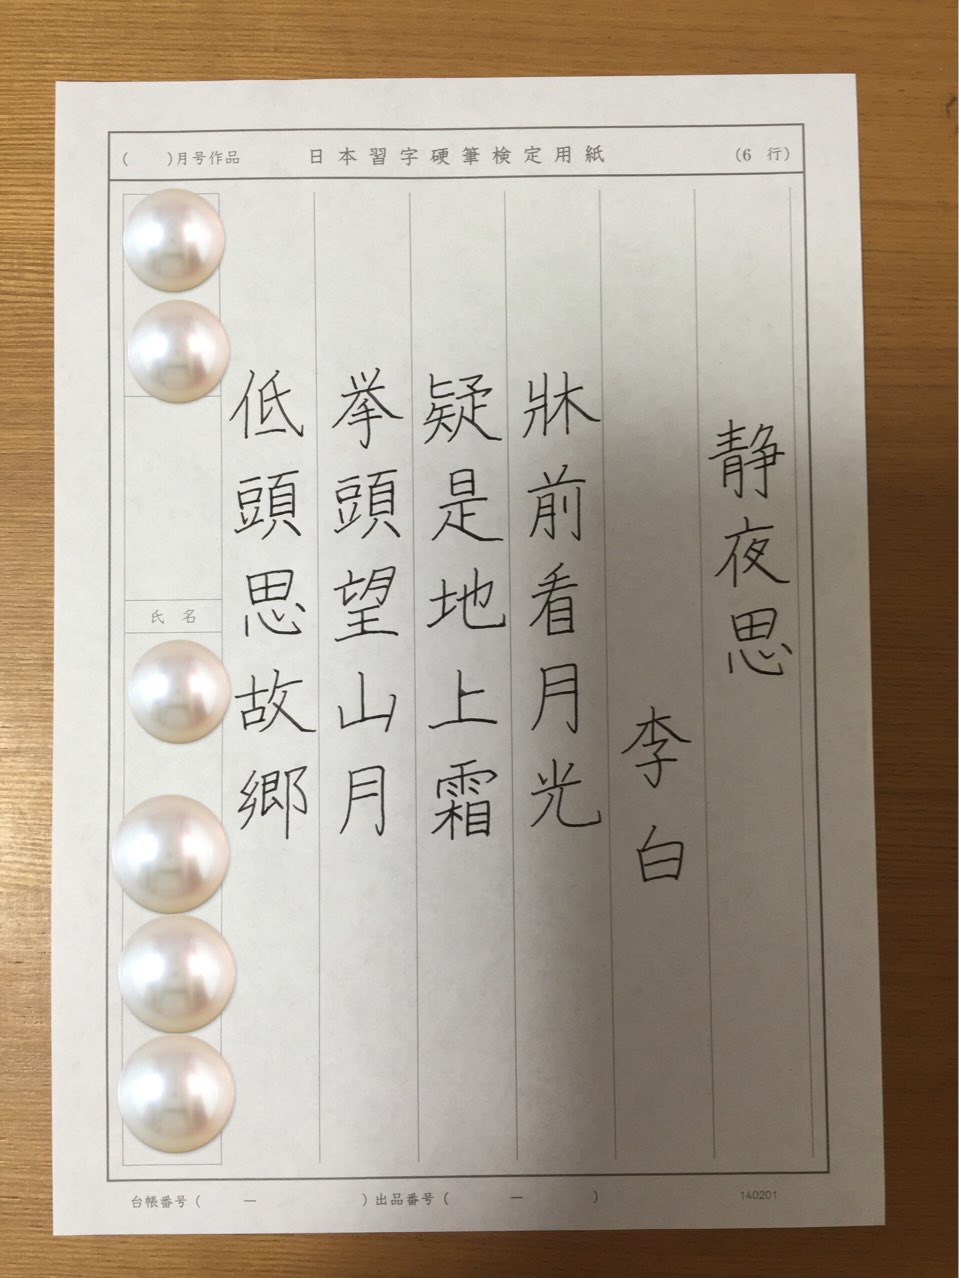 (　　)月号作品　日本習字硬筆検定用紙　(6 行)
静夜思
李白
牀前看月光
疑是地上霜
挙頭望山月
低頭思故郷
氏名
台帳番号(　　ー　　)出品番号(　　ー　　)　140201